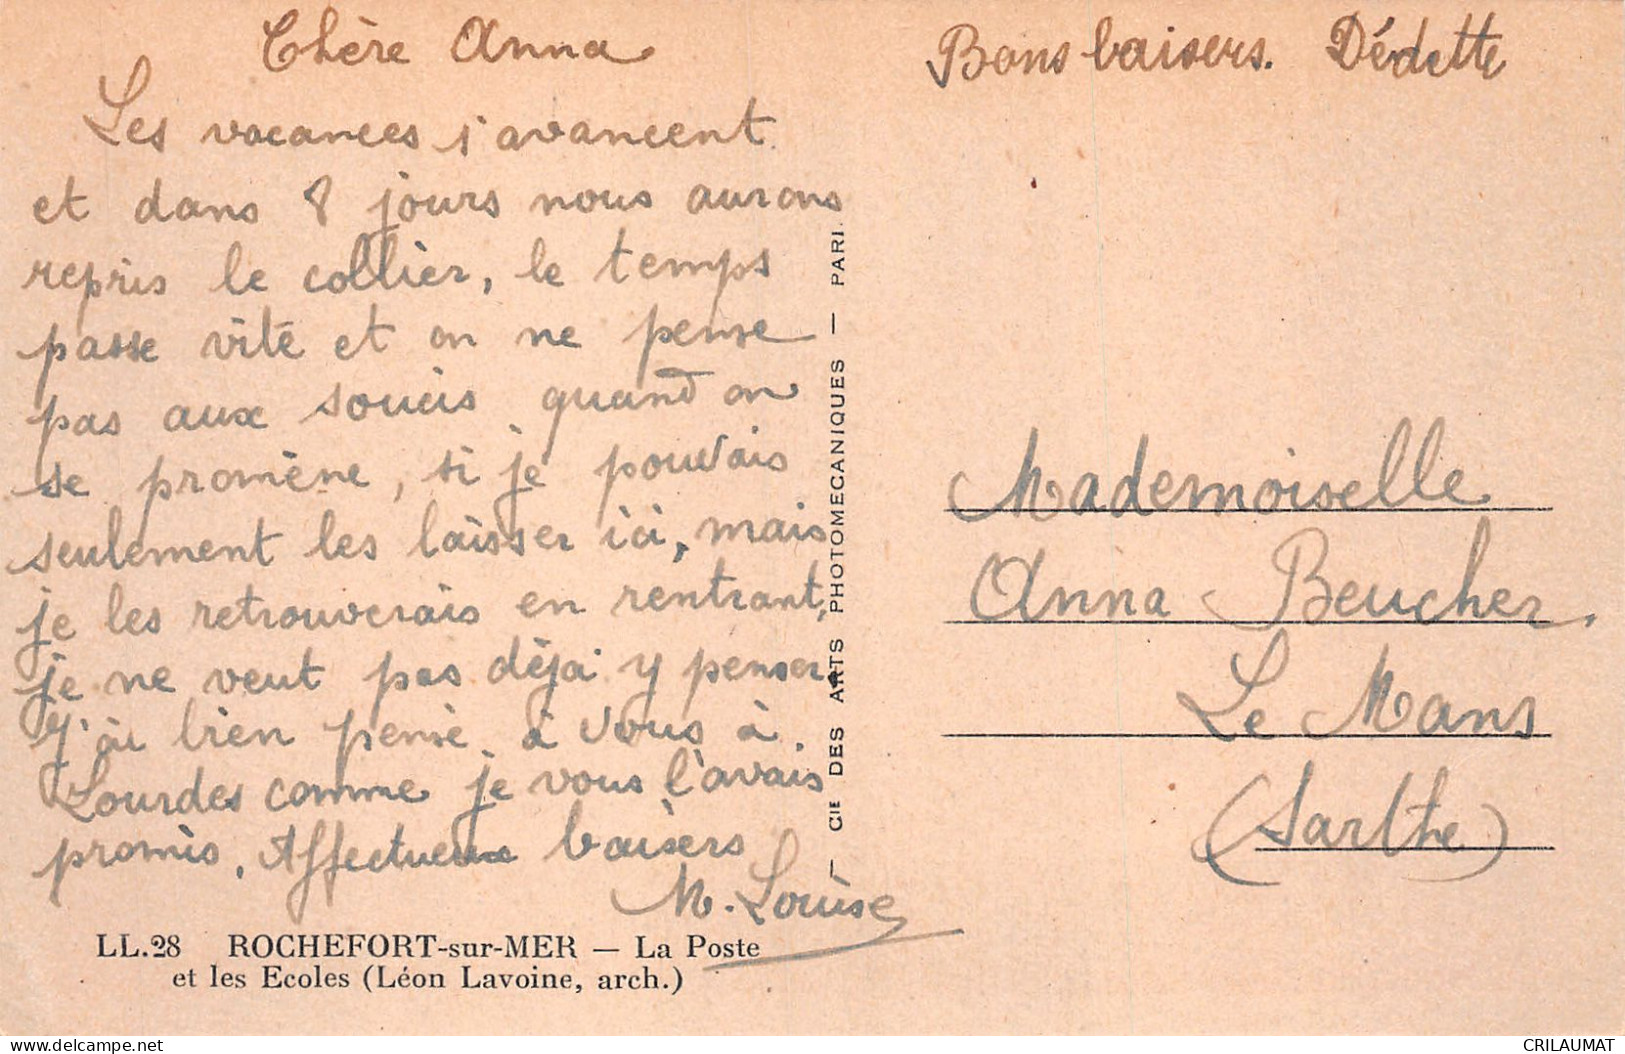 Chère Anna
Les vacances s'avancent
et dans 8 jours nous aurons
repris le collier, le temps
passe vite et on ne pense
pas aux soucis quand on
se promène, si je pouvais
seulement les laisser ici, mais
je les retrouverais en rentrant,
je ne veut pas déjà y penser
J'ai bien pensé à vous à
Lourdes comme je vous l'avais
promis. Affectueux baisers
M. Louise
LL.28 ROCHEFORT-sur-MER — La Poste
et les Ecoles (Léon Lavoine, arch.)
— CIE DES ARTS PHOTOMECANIQUES — PARI
Bons baisers. Dédette
Mademoiselle
Anna Beucher.
Le Mans
(Sarthe)
delcampe.net
CRILAUMAT